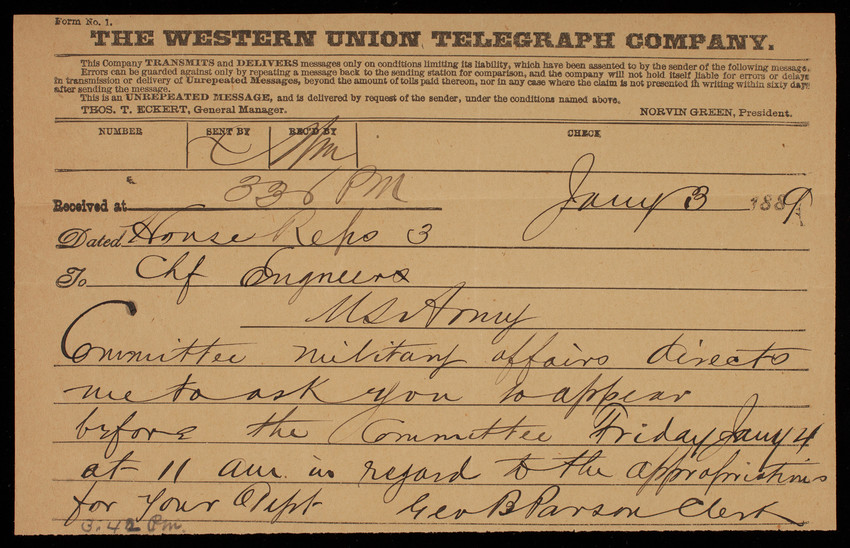 Form No. 1.
THE WESTERN UNION TELEGRAPH COMPANY.
This Company TRANSMITS and DELIVERS messages only on conditions limiting its liability, which have been assented to by the sender of the following message.
Errors can be guarded against only by repeating a message back to the sending station for comparison, and the company will not hold itself liable for errors or delays
in transmission or delivery of Unrepeated Messages, beyond the amount of tolls paid thereon, nor in any case where the claim is not presented in writing within sixty days
after sending the message.
This is an UNREPEATED MESSAGE, and is delivered by request of the sender, under the conditions named above.
THOS. T. ECKERT, General Manager. NORVIN GREEN, President.
NUMBER SENT BY REC'D BY CHECK
336 PM
Received at Jany 3 1889
Dated House Reps 3
To Chf Engneers
US Army
Committee military affairs directs
me to ask you to appear
before the Committee Friday Jany 4
at 11 am. in regard to the appropriations
for your Dept Geo B Parson Clerk
3.42 Pm.